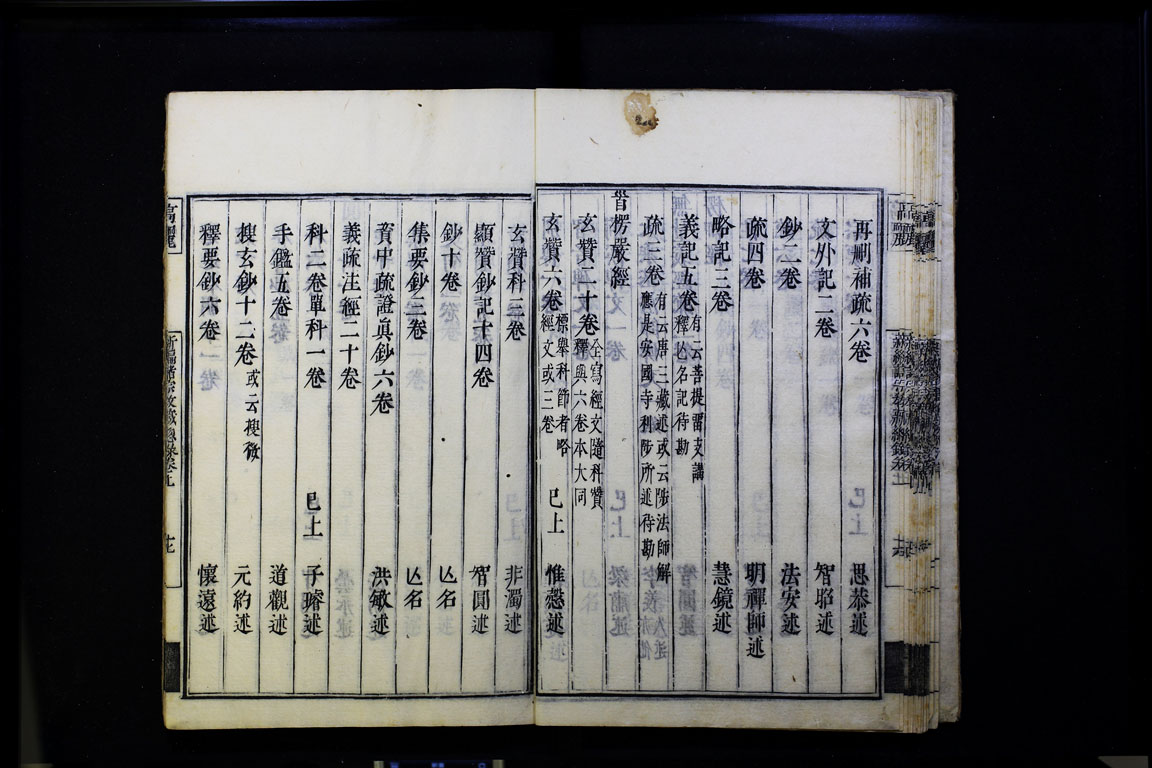 再刪補疏六卷 思恭述
文外記二卷 智㫤述
鈔二卷 法安述
疏四卷 明禪師述
略記三卷 慧鏡述
義記五卷 有云菩提留支講 釋亾名記待勘
疏三卷 有云唐三藏述或云陟法師解 應是安國寺利陟所述待勘
首楞嚴經
玄贊二十卷 全寫經文隨科贊 釋與六卷本大同
玄贊六卷 標舉科節者略 經文或三卷 巳上 惟慤述
玄贊科三卷 非濁述
顯贊鈔記十四卷 智圓述
鈔十卷 亾名
集要鈔三卷 亾名
資中疏證眞鈔六卷 洪敏述
義疏注經二十卷
科二卷單科一卷 巳上 子璿述
手鑑五卷 道觀述
搜玄鈔十二卷 或云䅹微 元約述
釋要鈔六卷 懷遠述
高麗
新編諸宗教藏總錄卷